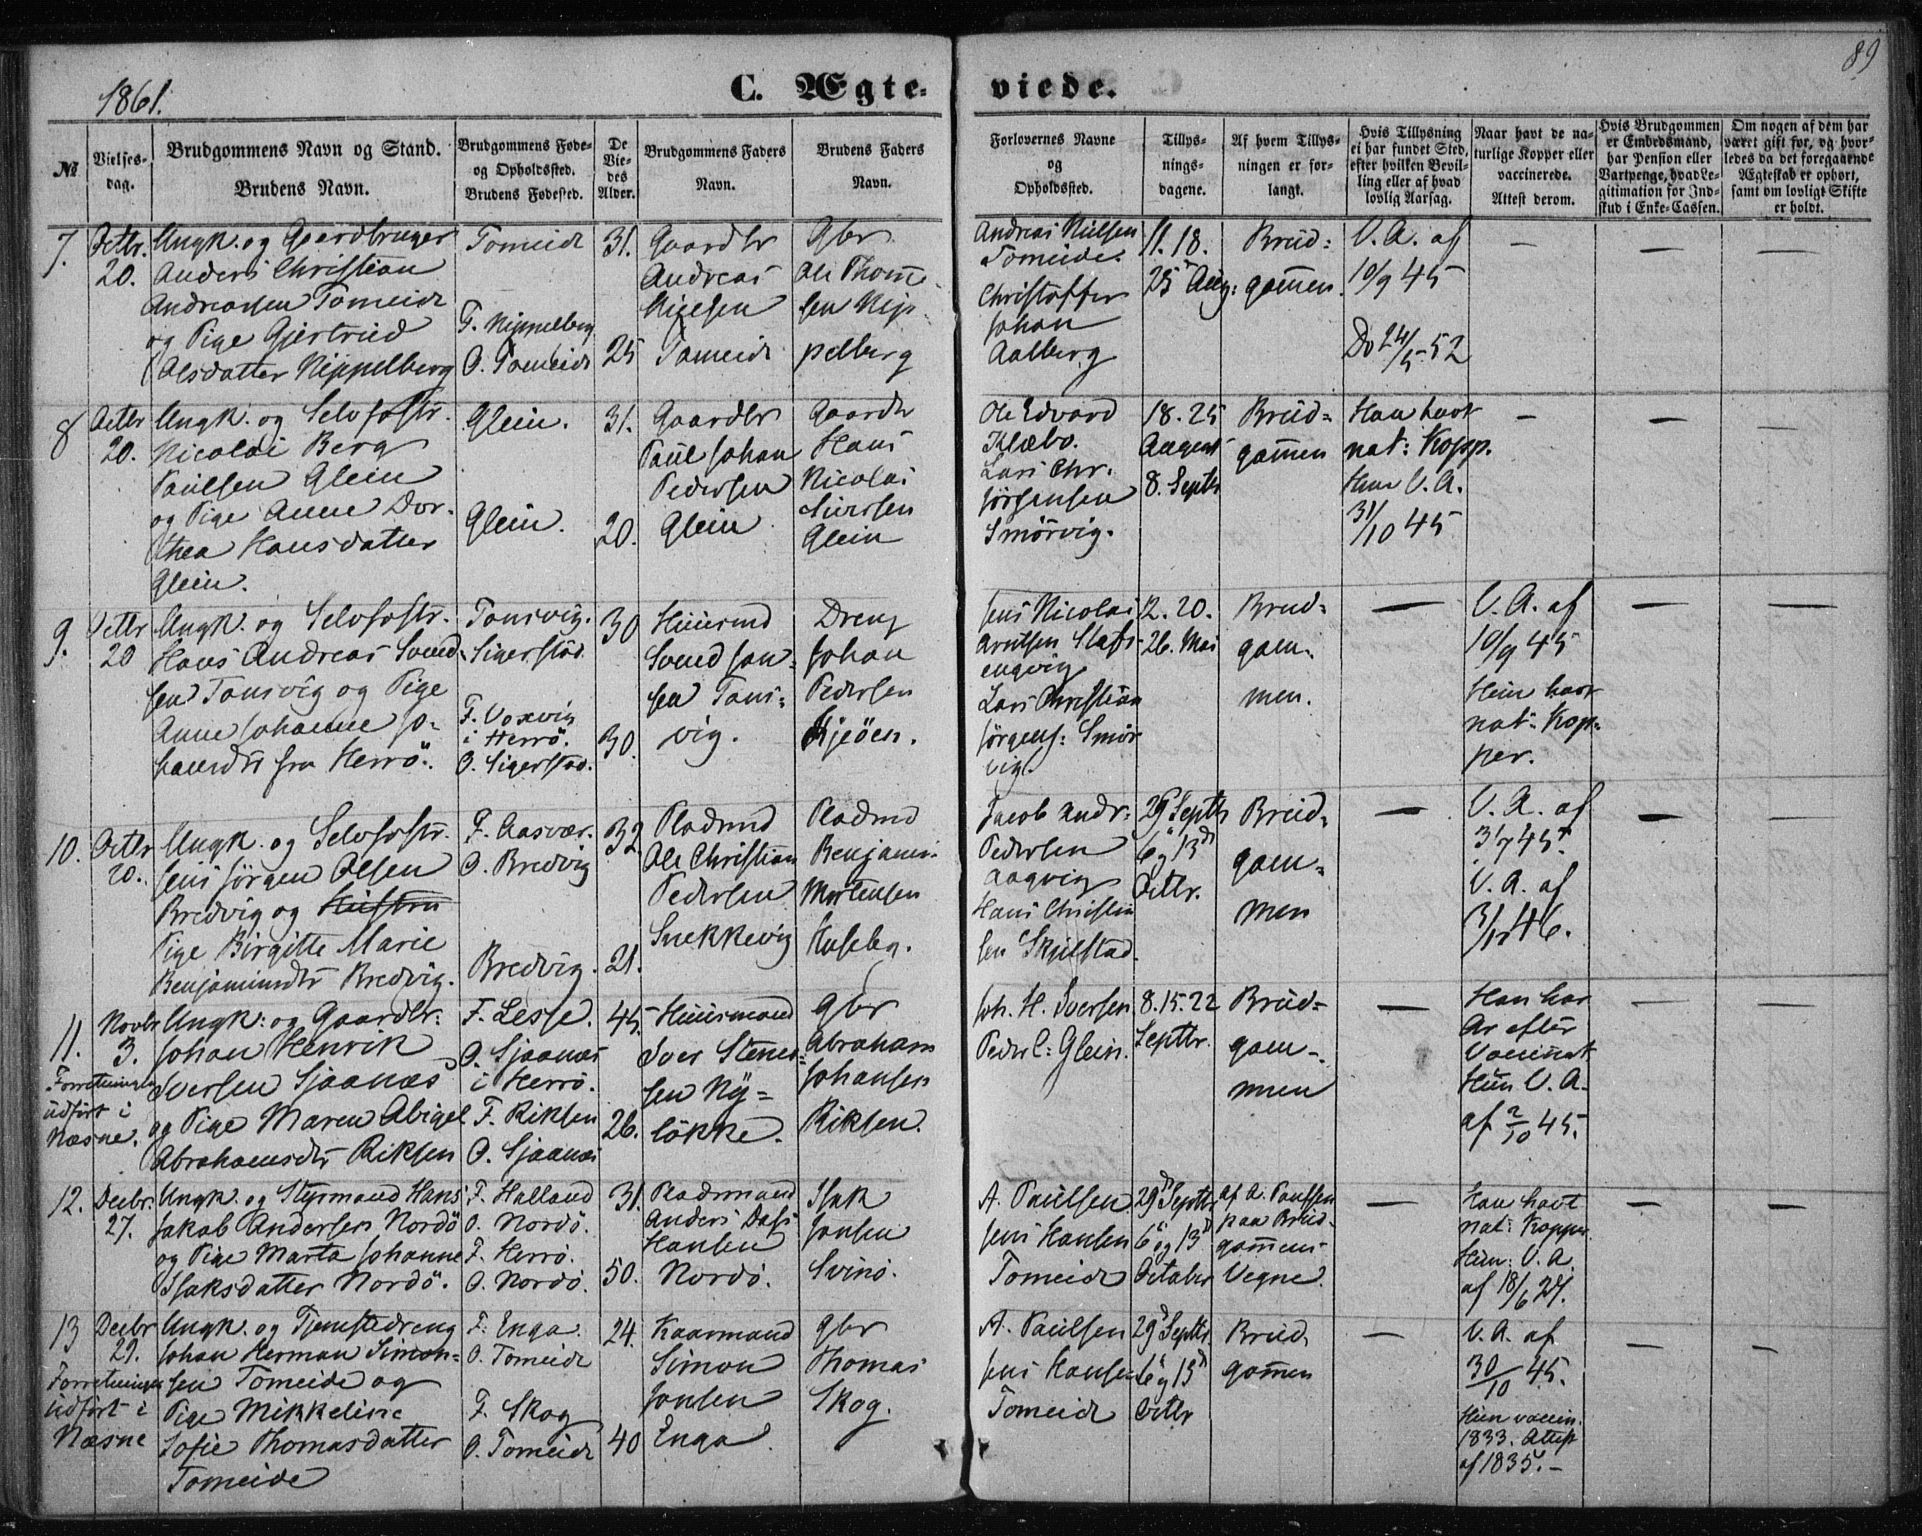 1861.
C. Ægte-
viede.
89
№
Vielses-
dag.
Brudgommens Navn og Stand.
Brudens Navn.
Brudgommens Føde-
og Opholdssted.
Brudens Fødested.
De
Vie-
des
Alder.
Brudgommens Faders
Navn.
Brudens Faders
Navn.
Forlovernes Navne
og
Opholdssted.
Tillys-
nings-
dagene.
Af hvem Tillys-
ningen er for-
langt.
Hvis Tillysning
ei har fundet Sted,
efter hvilken Bevil-
ling eller af hvad
lovlig Aarsag.
Naar havt de na-
turlige Kopper eller
vaccinerede.
Attest derom.
Hvis Brudgommen
er Embedsmand,
har Pension eller
Vartpenge, hvad Le-
gitimation for Ind-
skud i Enke-Cassen.
Om nogen af dem har
været gift før, og hvor-
ledes da det foregaaende
Ægteskab er ophørt,
samt om lovligt Skifte
er holdt.
7.
Octbr.
20.
Ungk. og Gaardbruger
Anders Christian
Andreassen Tomeide
og Pige Gjertrud
Olsdatter Nippelberg
Tomeide
F. Nippelberg
O. Tomeide
31.
25
Gaardbr
Andreas
Nielsen
Tomeide
Gbr.
Ole Thom-
sen Nip-
pelberg
Andreas Nielsen
Tomeide.
Christoffer
Johan
Aalberg
11. 18.
25 Aug:
Brud-
gommen.
V. A. af
10/9 45
Do 24/5 52
—
—
—
8
Octbr
20.
Ungk. og Selvfostr.
Nicolai Berg
Paulsen Glein
og Pige Anne Dor-
thea Hansdatter
Glein.
Glein.
Glein.
31.
20.
Gaardbr
Paul Johan
Pedersen
Glein
Gaardbr
Hans
Nicolai
Iversen
Glein
Ole Edvard
Klæbo.
Lars Chr.
Jörgensen
Smörvig.
18. 25
August
8. Septbr
Brud-
gommen
Han havt
nat: Kopp.
Hun V. A.
31/10 45
—
—
—
9.
Octbr
20
Ungk. og Selvfostr.
Hans Andreas Svend-
sen Tonsvig og Pige
Anne Johanne Jo-
hansdtr fra Herrö.
Tonsvig.
Sigerstad.
F. Voxvig
i Herrö.
O. Sigerstad.
30
30.
Huusmd
Svend Jon-
sen Tons-
vig.
Dreng
Johan
Pedersen
Jens Nicolai
Arntsen
Lars Christian
Jörgens: Smör
vig.
12. 20.
26. Mai
Brud-
gom-
men.
—
V. A. af
10/9 45
Hun havt
nat: Kop-
per.
—
—
10.
Octbr
20.
Ungk. og Selvfostr.
Jens Jörgen Olsen
Bredvig og
Pige Birgitte Marie
Benjaminsdtr Bredvig.
F. Aasvær.
O. Bredvig
Bredvig.
32.
21.
Pladsmd
Ole Christian
Pedersen
Snekkevig
Pladsmd
Benjamin
Mortensen
Huseby.
Jacob Andr:
Pedersen
Aagvig
Hans Christen
sen Skjelstad.
29 Septbr
6 og 13d
Octbr.
Brud-
gom-
men
—
V. A. af
3/7 45.
V. A. af
—
—
11.
Novbr
3.
Forretningen
udfört i
Næsne.
Ungk. og Gaardbr:
Johan Henrik
Iversen Sjaanæs
og Pige Maren Abigel
Abrahamsdtr Riksen
F. Lesse.
O. Sjaanæs
i Herrö.
F. Riksen
O. Sjaanæs
45.
26.
Huusmand
Iver Stenes-
sen Ny-
lökke.
Gbr
Abraham
Johansen
Riksen.
Joh. H. Iversen.
Peder C: Glein.
8. 15. 22
Septbr.
Brud-
gom-
men
—
Han har
Ar efter
Vaccinat
Hun V. A.
af 2/10 45.
—
—
12.
Decbr.
27.
Ungk. og Styrmand Hans
Jakob Andersen Nordö
og Pige Marta Johanne
Isaksdatter Nordö.
F. Halland
O. Nordö.
F. Herrö.
O. Nordö.
31.
50.
Pladsmand
Anders Dass
Hansen
Nordö.
Isak
Jonsen
Svinö.
A. Paulsen
Jens Hansen
Tomeide
29d Septbr
6 og 13d
October
af A. Paulsen
paa Brud-
gommens
Vegne.
—
Han havt
nat: Kopper.
Hun: V. A.
af 18/6 27.
—
—
13
Decbr
29.
Forretningen
udfört i
Næsne
Ungk. og Tjenestedreng
Johan Herman Simon-
sen Tomeide og
Pige Mikkeline
Sofie Thomasdatter
Tomeide
F. Enga.
O. Tomeide
F. Skog
O. Tomeide
24.
40
Kaarmand
Simon
Jonsen
Enga
gbr
Thomas
Skog.
A. Paulsen
Jens Hansen
Tomeide
29d Septbr.
6 og 13d
Octbr
Brud
gommen
—
V. A. af
30/10 45.
Hun vaccin.
1833. Attest
af 1835.—
—
—